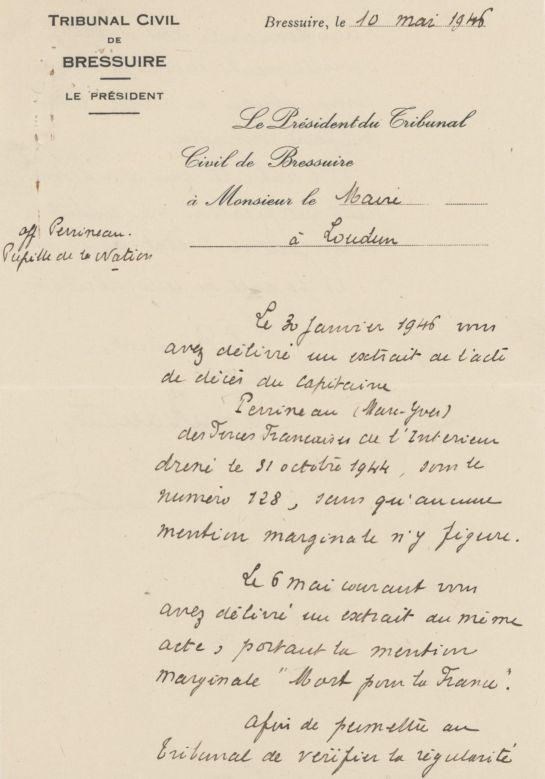 TRIBUNAL CIVIL
DE
BRESSUIRE
LE PRÉSIDENT
Bressuire, le 10 mai 1946
Le Président du Tribunal
Civil de Bressuire
à Monsieur le Maire
à Loudun
aff Perrineau.
Pupille de la Nation
Le 30 Janvier 1946 vous
avez délivré un extrait de l'acte
de décès du capitaine
Perrineau (Marc-Yves)
des Forces Françaises de l'Interieur
dressé le 31 octobre 1944, sous le
numéro 128, sans qu'aucune
mention marginale n'y figure.
Le 6 mai courant vous
avez délivré un extrait du même
acte, portant la mention
marginale "Mort pour la France".
Afin de permettre au
Tribunal de vérifier la régularité